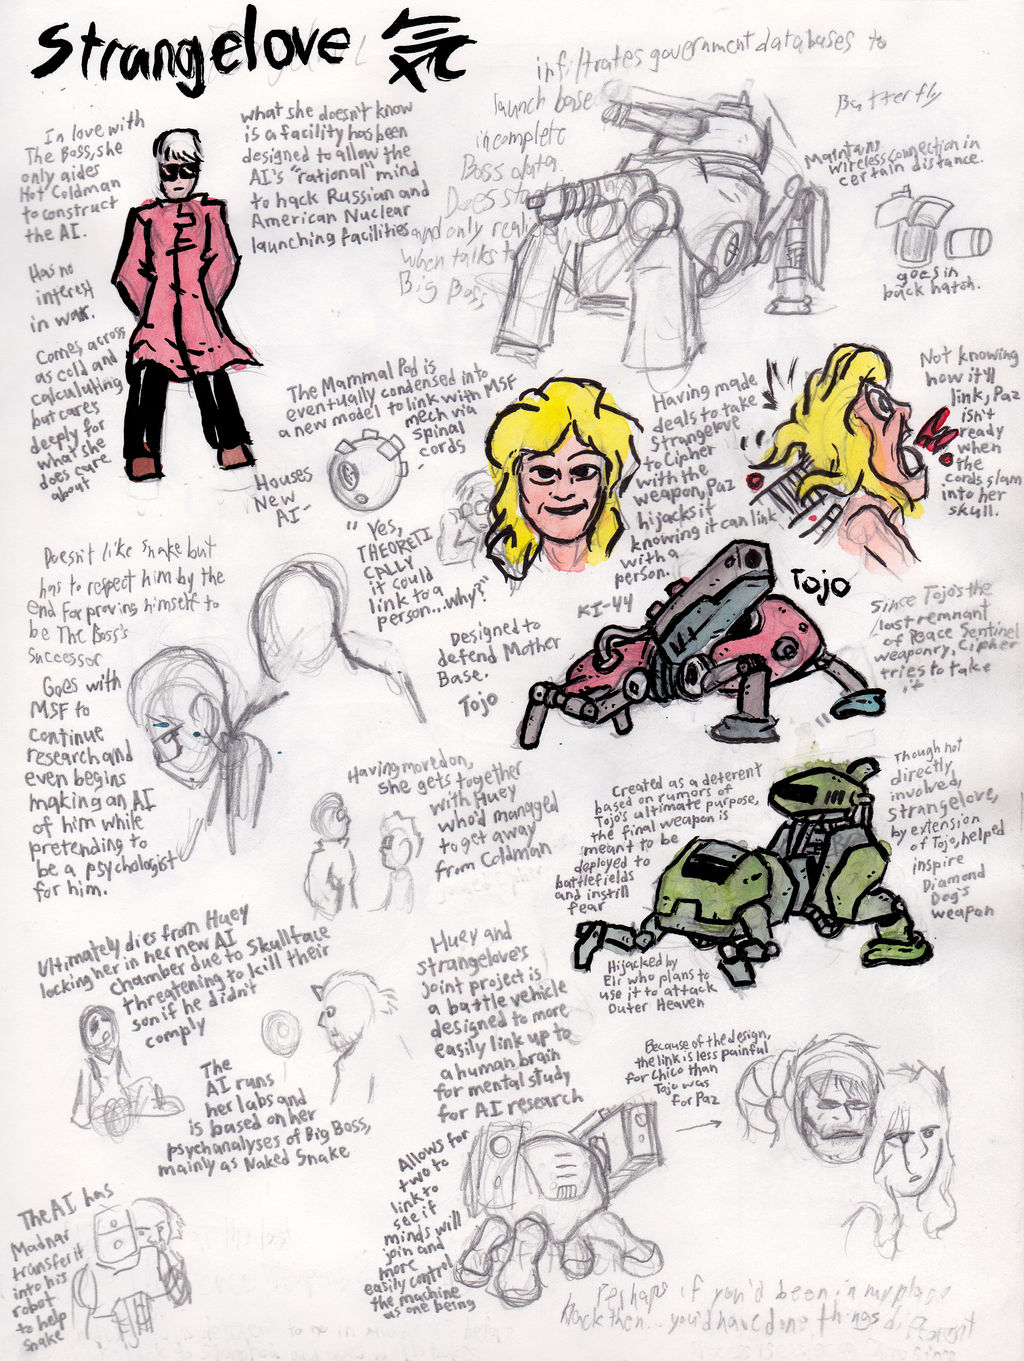 Strangelove 気
In love with
The Boss, she
only aides
Hot Coldman
to construct
the AI.
Has no
interest
in war.
Comes across
as cold and
calculating
but cares
deeply for
what she
does care
about
what she doesn't know
is a facility has been
designed to allow the
AI's "rational" mind
to hack Russian and
American Nuclear
launching facilities
infiltrates government databases to
launch base
incomplete
Boss data.
Does start
and only reali
when talks to
Big Boss
Butterfly
Maintains
wireless connection in
certain distance.
goes in
back hatch.
The Mammal Pod is
eventually condensed into
a new model to link with MSF
mech via
spinal
cords
Houses
New
AI
"Yes,
THEORETI
CALLY
it could
link to a
person...why?"
Having made
deals to take
Strangelove
to Cipher
with the
weapon, Paz
hijacks it
knowing it can link
with a
person.
Not knowing
how it'll
link, Paz
isn't
ready
when
the
cords slam
into her
skull.
Doesn't like Snake but
has to respect him by the
end for proving himself to
be The Boss's
successor
Goes with
MSF to
continue
research and
even begins
making an AI
of him while
pretending to
be a psychologist
for him.
KI-44
Tojo
Designed to
defend Mother
Base.
Tojo
Since Tojo's the
last remnant
of Peace Sentinel
weaponry, Cipher
tries to take
it
Having moved on,
she gets together
with Huey
who'd managed
to get away
from Coldman
Created as a deterent
based on rumors of
Tojo's ultimate purpose,
the final weapon is
meant to be
deployed to
battlefields
and instill
fear
Though not
directly
involved,
Strangelove,
by extension
of Tojo, helped
inspire
Diamond
Dog's
weapon
Hijacked by
Eli who plans to
use it to attack
Outer Heaven
Ultimately dies from Huey
locking her in her new AI
chamber due to Skullface
threatening to kill their
son if he didn't
comply
The
AI runs
her labs and
is based on her
psychanalyses of Big Boss,
mainly as Naked Snake
Huey and
Strangelove's
joint project is
a battle vehicle
designed to more
easily link up to
a human brain
for mental study
for AI research
Because of the design,
the link is less painful
for Chico than
Tojo was
for Paz
Allows for
two to
link to
see if
minds will
join and
more
easily control
the machine
as one being
The AI has
Madnar
transfer it
into his
robot
to help
Snake
Perhaps if you'd been in my place
back then... you'd have done things different